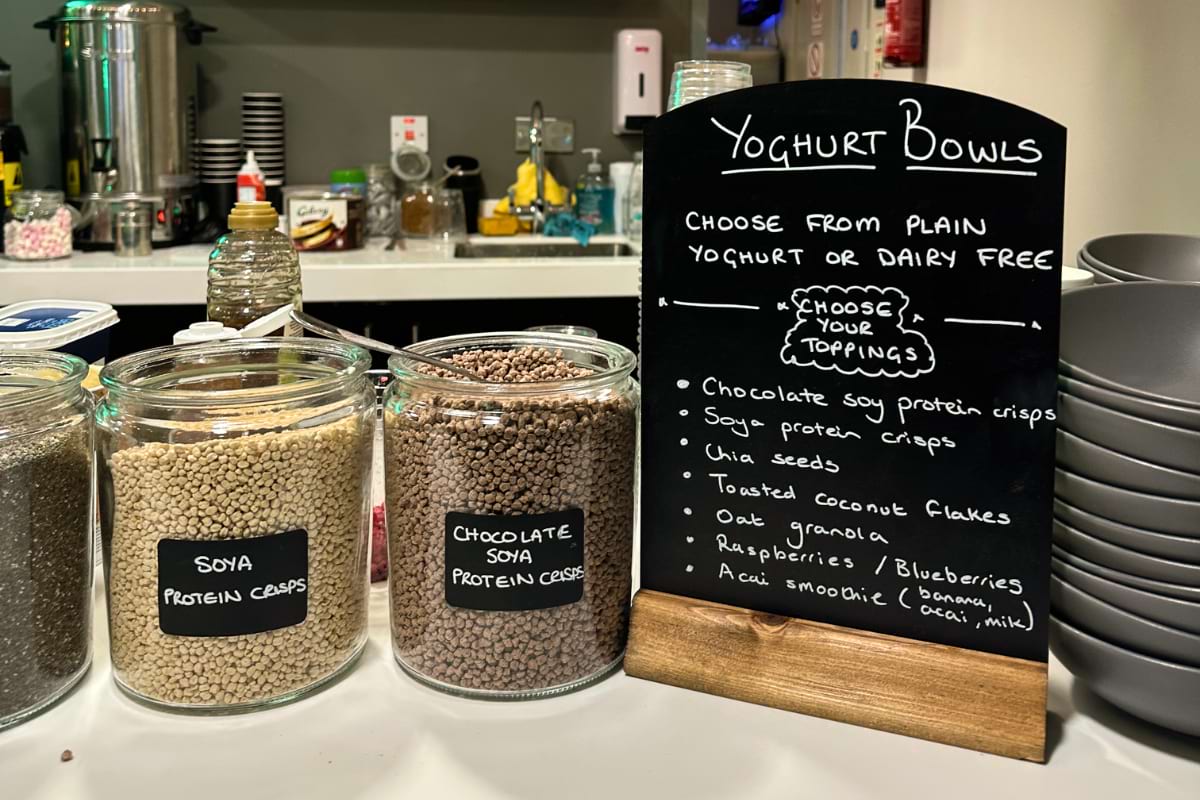 Yoghurt Bowls
Choose from plain
yoghurt or dairy free
Choose
your
toppings
• Chocolate soy protein crisps
• Soya protein crisps
• Chia seeds
• Toasted coconut flakes
• Oat granola
• Raspberries / Blueberries
• Acai smoothie (banana,
acai, milk)
SOYA
PROTEIN CRISPS
CHOCOLATE
SOYA
PROTEIN CRISPS
Galaxy